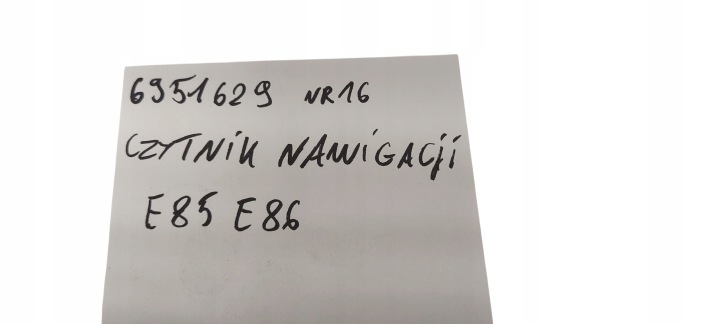 6951629 NR16
CZYTNIK NAWIGACJI
E85 E86